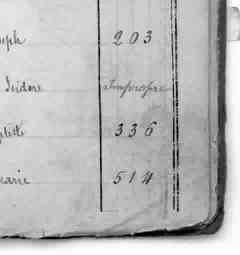 seph 203
Isidore Impropre
ptiste 336
carie 514